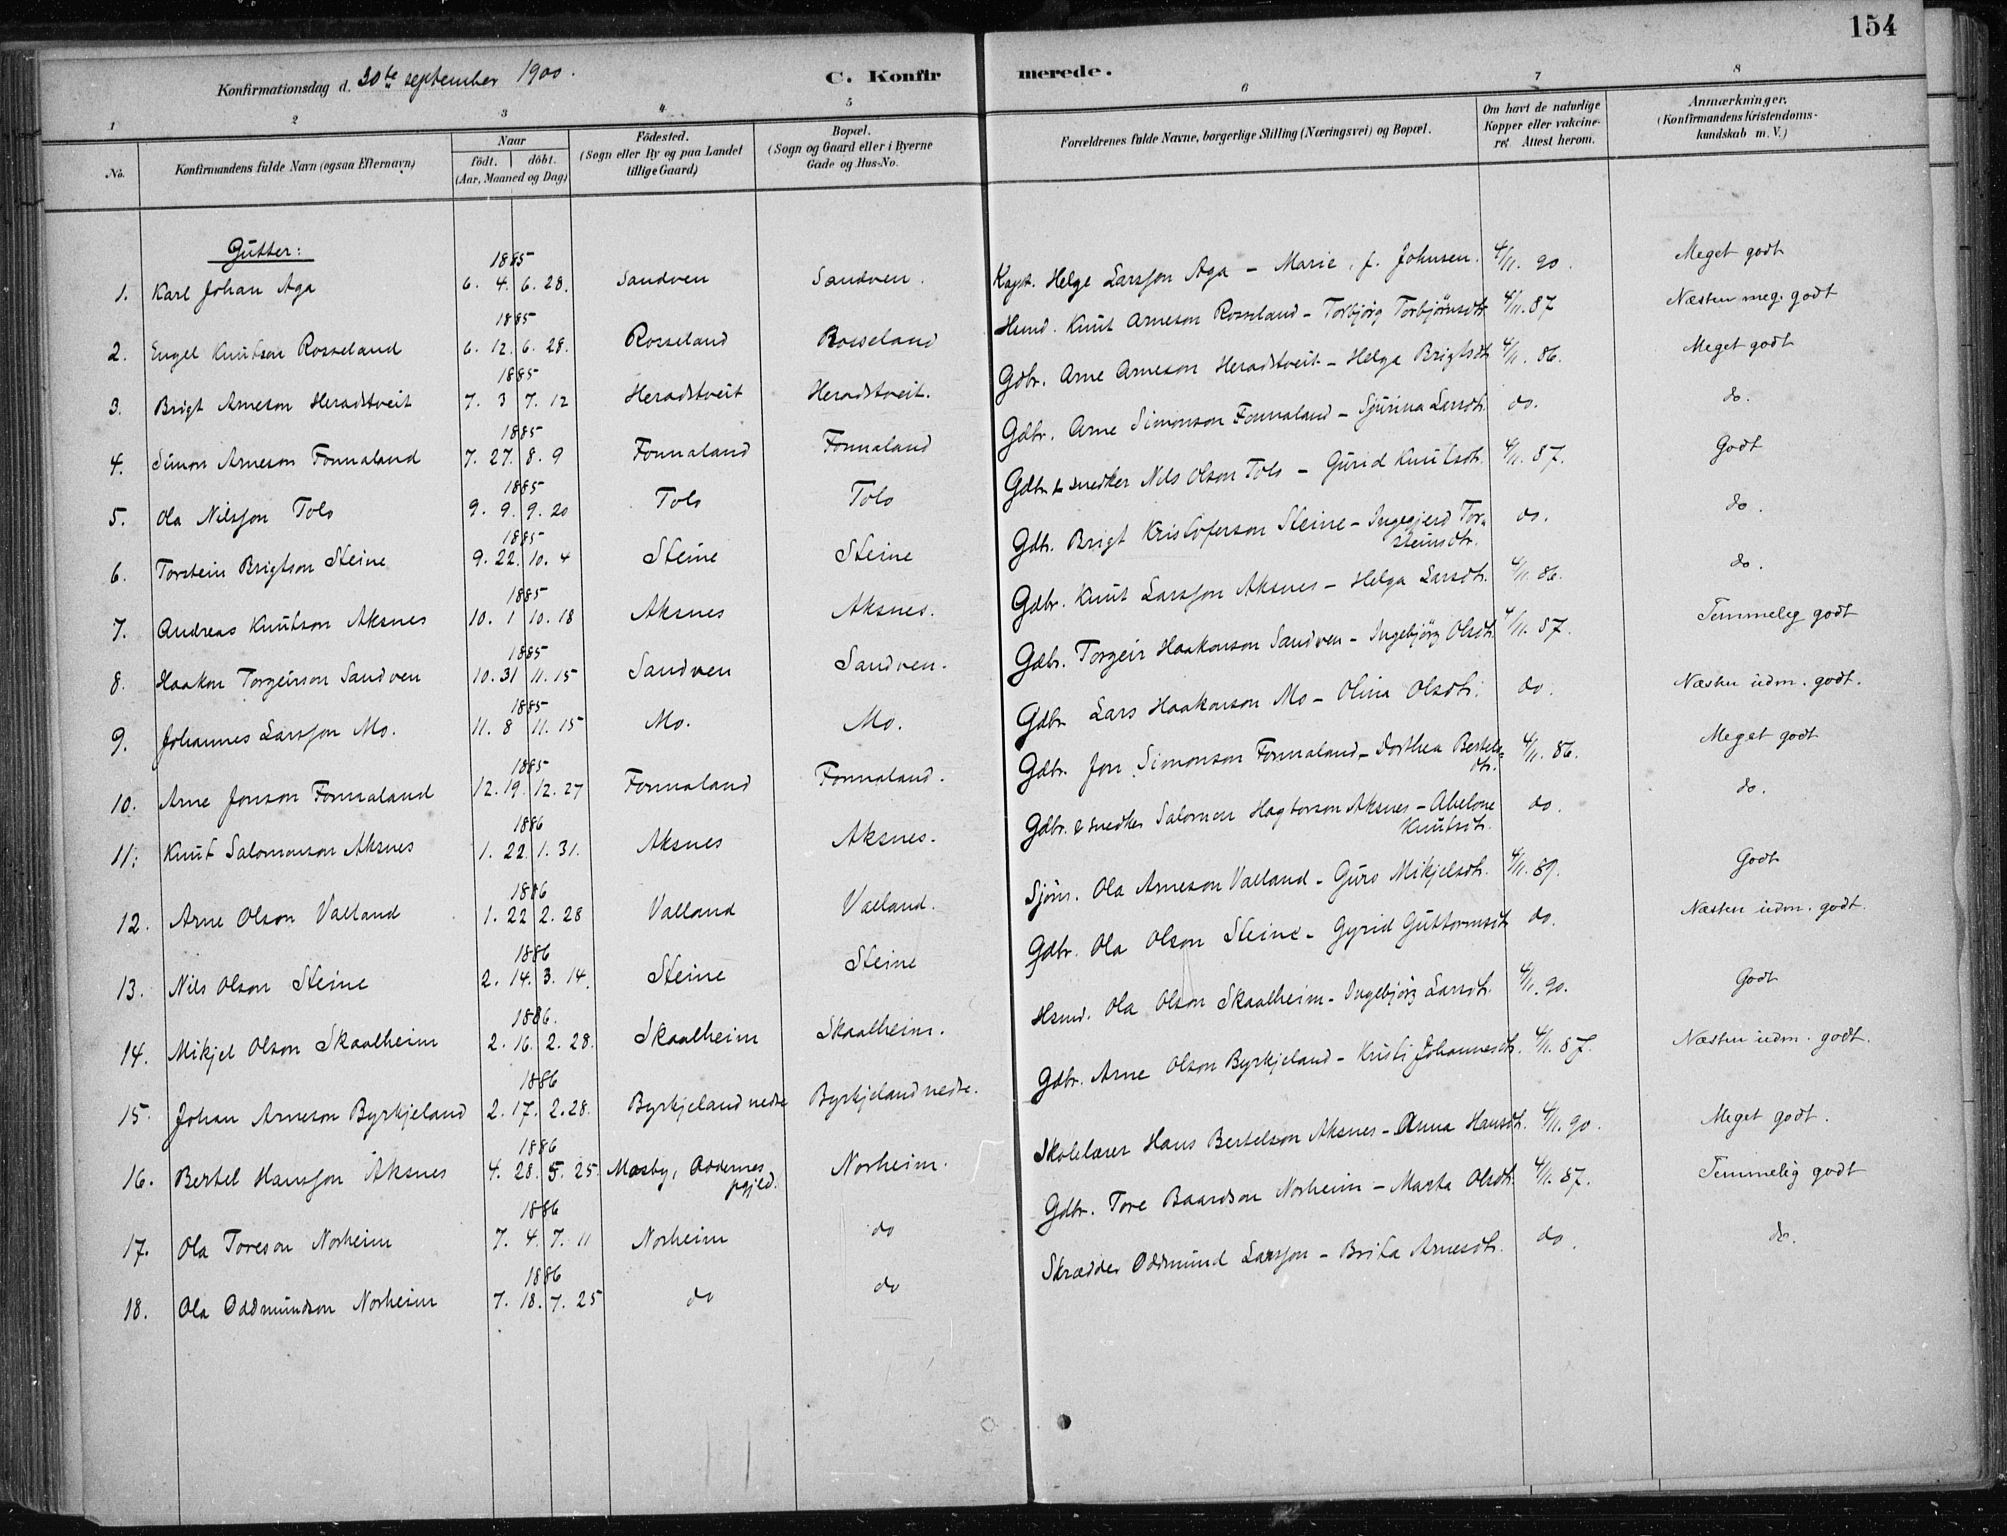 154
Konfirmationsdag d. 30te september 1900.
C. Konfirmerede.
1 2 3 4 5 6 7 8
No. Konfirmandens fulde Navn (ogsaa Efternavn) Naar født. døbt. (Aar, Maaned og Dag) Fødested. (Sogn eller By og paa Landet tillige Gaard) Bopæl. (Sogn og Gaard eller i Byerne Gade og Hus-No. Forældrenes fulde Navne, borgerlige Stilling (Næringsvei) og Bopæl. Om havt de naturlige Kopper eller vakcineret Attest herom. Anmærkninger. (Konfirmandens Kristendomskundskab m. V.)
Gutter:
1885
1. Karl Johan Aga 6. 4. 6. 28. Sandven Sandven. Kapt. Helge Larsson Aga - Marie, f. Johnsen. 4/11. 90. Meget godt
1885
2. Engel Knutson Rosseland 6. 12. 6. 28. Rosseland Rosseland Husmd. Knut Arneson Rosseland - Torbjørg Torbjørnsdtr. 4/11. 87 Næsten meg. godt
1885
3. Brigt Arneson Heradstveit 7. 3 7. 12 Heradstveit Heradstveit. Gdbr. Arne Arneson Heradstveit - Helga Brigtsdtr. 4/11. 86. Meget godt
1885
4. Simon Arneson Fonnaland 7. 27. 8. 9 Fonnaland Fonnaland Gdbr. Arne Simonson Fonnaland - Sjurina Larsdtr. do. do.
1885
5. Ola Nilsson Tolo 9. 9. 9. 20 Tolo Tolo Gdbr. & snedker Nils Olson Tolo - Gurid Knutsdtr. 4/11. 87. Godt
1885
6. Torstein Brigtson Steine 9. 22. 10. 4 Steine Steine Gdbr. Brigt Kristoferson Steine - Ingegjerd Torsteinsdtr. do. do.
1885
7. Andreas Knutson Aksnes 10. 1 10. 18 Aksnes Aksnes. Gdbr. Knut Larsson Aksnes - Helga Larsdtr. 4/11. 86. do.
1885
8. Haakon Torgeirson Sandven 10. 31 11. 15 Sandven Sandven. Gdbr. Torgeir Haakonson Sandven - Ingebjørg Olsdtr. 4/11. 87. Temmelig godt
1885
9. Johannes Larsson Mo. 11. 8 11. 15 Mo. Mo. Gdbr Lars Haakonson Mo - Olina Olsdtr. do. Næsten udm. godt.
1885
10. Arne Jonson Fonnaland 12. 19. 12. 27 Fonnaland Fonnaland. Gdbr. Jon Simonson Fonnaland - Dorthea Bertelsdtr. 4/11. 86. Meget godt
1886
11. Knut Salomonson Aksnes 1. 22. 1. 31. Aksnes Aksnes. Gdbr. & snedker Salomon Hagtorson Aksnes - Abelone Knutsdtr. do. do.
1886
12. Arne Olson Valland 1. 22 2. 28 Valland Valland. Sjøm. Ola Arneson Valland - Guro Mikjelsdtr. 4/11. 89. Godt
1886
13. Nils Olson Steine 2. 14. 3. 14. Steine Steine Gdbr. Ola Olson Steine - Gyrid Guttormsdtr. do. Næsten udm. godt.
1886.
14. Mikjel Olson Skaalheim 2. 16. 2. 28. Skaalheim Skaalheim. Husmd. Ola Olson Skaalheim - Ingebjørg Larsdtr. 4/11. 90. Godt
1886
15. Johan Arneson Byrkjeland 2. 17. 2. 28. Byrkjeland nedre Byrkjeland nedre. Gdbr. Arne Olson Byrkjeland - Kristi Johannesdtr. 4/11. 87. Næsten udm. godt.
1886
16. Bertel Hansson Aksnes 4. 28. 5. 25. Mosby, Oddernes pgjld. Norheim. Skolelærer Hans Bertelson Aksnes - Anna Hansdtr. 4/11. 90. Meget godt.
1886
17. Ola Toreson Norheim 7. 4. 7. 11 Norheim do Gdbr. Tore Baardson Norheim - Marta Olsdtr. 4/11. 87. Temmelig godt
1886
18. Ola Oddmundson Norheim 7. 18. 7. 25 do do Skrædder Oddmund Larsson - Brita Arnesdtr. do. do.